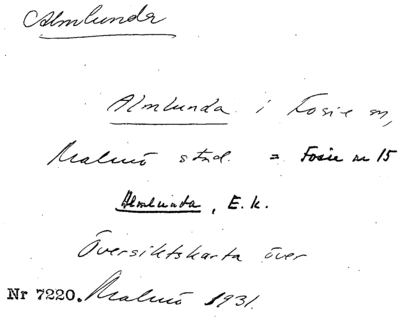 Almlunda
Almlunda i Fosie sn,
Malmö stad. = Fosie sn 15
Almlunda, E. k.
Översiktskarta över
Nr 7220. Malmö 1931.